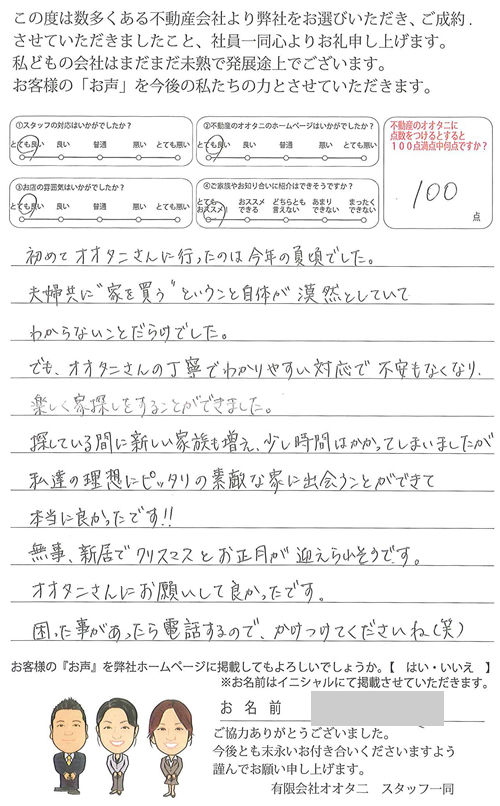 この度は数多くある不動産会社より弊社をお選びいただき、ご成約.
させていただきましたこと、社員一同心よりお礼申し上げます。
私どもの会社はまだまだ未熟で発展途上でございます。
お客様の「お声」を今後の私たちの力とさせていただきます。
①スタッフの対応はいかがでしたか?
とても良い 良い 普通 悪い とても悪い
②不動産のオオタニのホームページはいかがでしたか?
とても良い 良い 普通 悪い とても悪い
③お店の雰囲気はいかがでしたか?
とても良い 良い 普通 悪い とても悪い
④ご家族やお知り合いに紹介はできそうですか?
とても オススメ どちらとも あまり まったく
オススメ! できる 言えない できない できない
不動産のオオタニに
点数をつけるとすると
100点満点中何点ですか?
100
点
初めてオオタニさんに行ったのは今年の夏頃でした。
夫婦共に“家を買う”ということ自体が漠然としていて
わからないことだらけでした。
でも、オオタニさんの丁寧でわかりやすい対応で不安もなくなり、
楽しく家探しをすることができました。
探している間に新しい家族も増え、少し時間はかかってしまいましたが
私達の理想にピッタリの素敵な家に出会うことができて
本当に良かったです!!
無事、新居でクリスマスとお正月が迎えられそうです。
オオタニさんにお願いして良かったです。
困った事があったら電話するので、かけつけてくださいね(笑)
お客様の『お声』を弊社ホームページに掲載してもよろしいでしょうか。【 はい・いいえ 】
※お名前はイニシャルにて掲載させていただきます。
お 名 前
ご協力ありがとうございました。
今後とも末永いお付き合いくださいますよう
謹んでお願い申し上げます。
有限会社オオタニ スタッフ一同